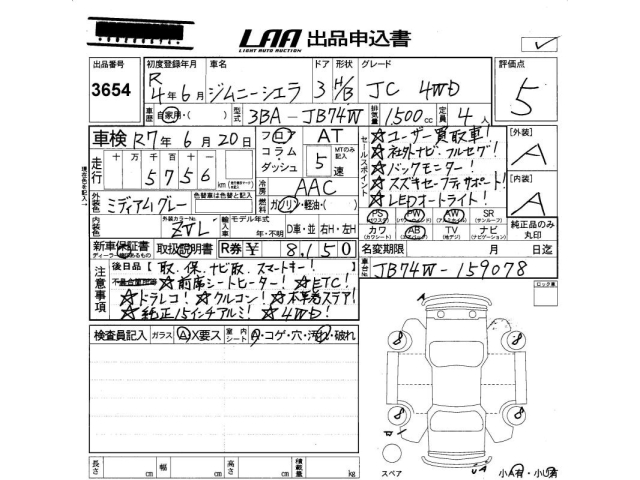 LAA 出品申込書
LIGHT AUTO AUCTION
出品番号 初度登録年月 車名 ドア 形状 グレード 評価点
3654 R 4年6月 ジムニーシエラ 3 H/B JC 4WD 5
車歴 自家用・( ) 型式 3BA-JB74W 排気量 1500cc 定員 4人
車検 R7年6月20日 フロア コラム・ダッシュ AT MTのみ記入 5速
セールスポイント
☆ユーザー買取車!
☆社外ナビ・フルセグ!
☆バックモニター!
☆スズキセーフティサポート!
☆LEDオートライト!
[外装] A
[内装] A
走行 十万 万 千 百 十 一
5756 km
冷房 AAC
外装色 ミディアムグレー 色替車は色替と記入 燃料 ガソリン・軽油・( )
PS PW AW SR
(パワステ) (パワーウィンドウ) (アルミホイル) (サンルーフ)
カワ AB TV ナビ
(カワシート) (エアバッグ) (地デジ) (ナビゲーション)
純正品のみ丸印
内装色 外装カラーNo. ZVL 輸入車 モデル年式 年・不明 D車・並 右H・左H
新車保証書 取扱説明書 R券 ¥ 8,150 名変期限 月 日迄
車台No. JB74W-159078
注意事項
後日品【取、保、ナビ取、スマートキー!】
☆前席シートヒーター! ☆ETC!
☆ドラレコ! ☆クルコン! ☆本革巻ステア!
☆純正15インチアルミ! ☆4WD!
ロック車
検査員記入 ガラス A・X要ス 室内シート A・コゲ・穴・汚れ・破れ
8 8
8 8
長さ cm 幅 cm 高さ cm 積載量 kg
スペア
小A有・小U有